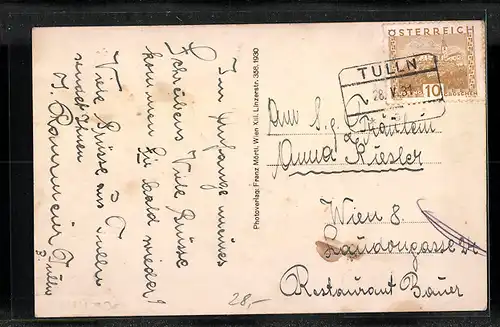 Im Anfange meines
Schreibens Viele Grüsse
kommen Sie bald wieder!
Viele Grüsse aus Tulln
sendet Ihnen
J.
Tulln
Photoverlag: Franz Mörtl, Wien XIII, Linzerstr. 358, 1930
28,-
ÖSTERREICH
10
TULLN
28.V.31
An
Fräulein
Anna Riesler
Wien 8.
Laudongasse 24
Restaurant Bauer